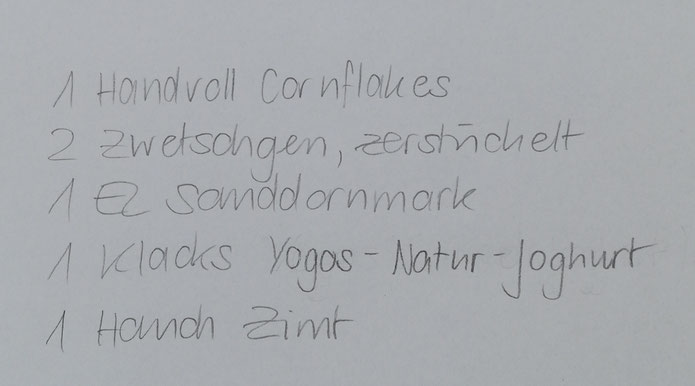 1 Handvoll Cornflakes
2 Zwetschgen, zerstückelt
1 EL Sanddornmark
1 Klacks Yogos-Natur-Joghurt
1 Hauch Zimt